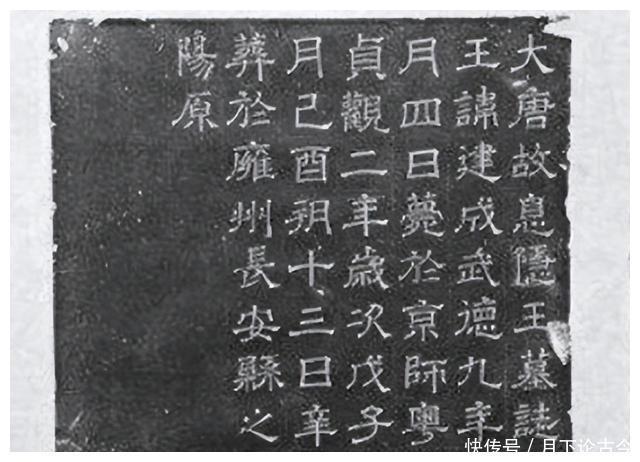 大唐故息隱王墓誌
王諱建成武德九年
月四日薨於京師粵
貞觀二年歲次戊子
月己酉朔十三日辛
葬於雍州長安縣之
陽原
快传号 / 月下论古今